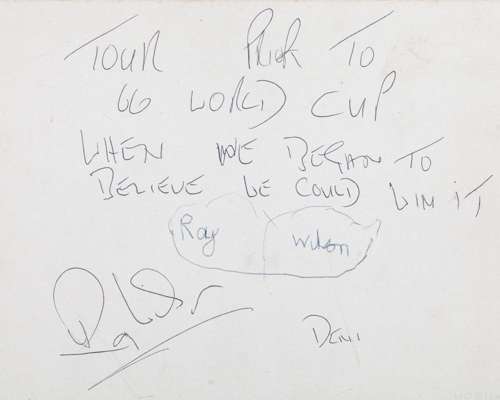 TOUR PRIOR TO
66 WORLD CUP
WHEN WE BEGAN TO
BELIEVE WE COULD WIN IT
Ray Wilson